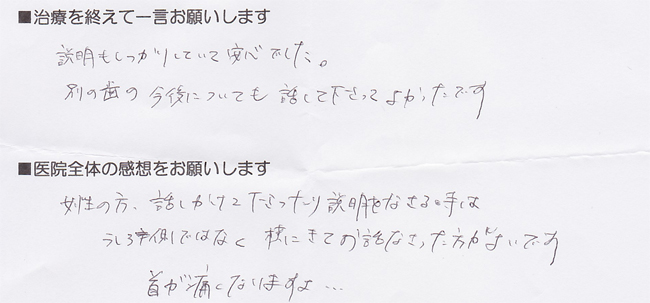 ■治療を終えて一言お願いします
説明もしっかりしていて安心でした。
別の歯の今後についても話して下さってよかったです
■医院全体の感想をお願いします
女性の方、話しかけて下さったり説明をなさる時は
うしろ側ではなく横にきてお話なさった方がよいです
首が痛くなりますよ…